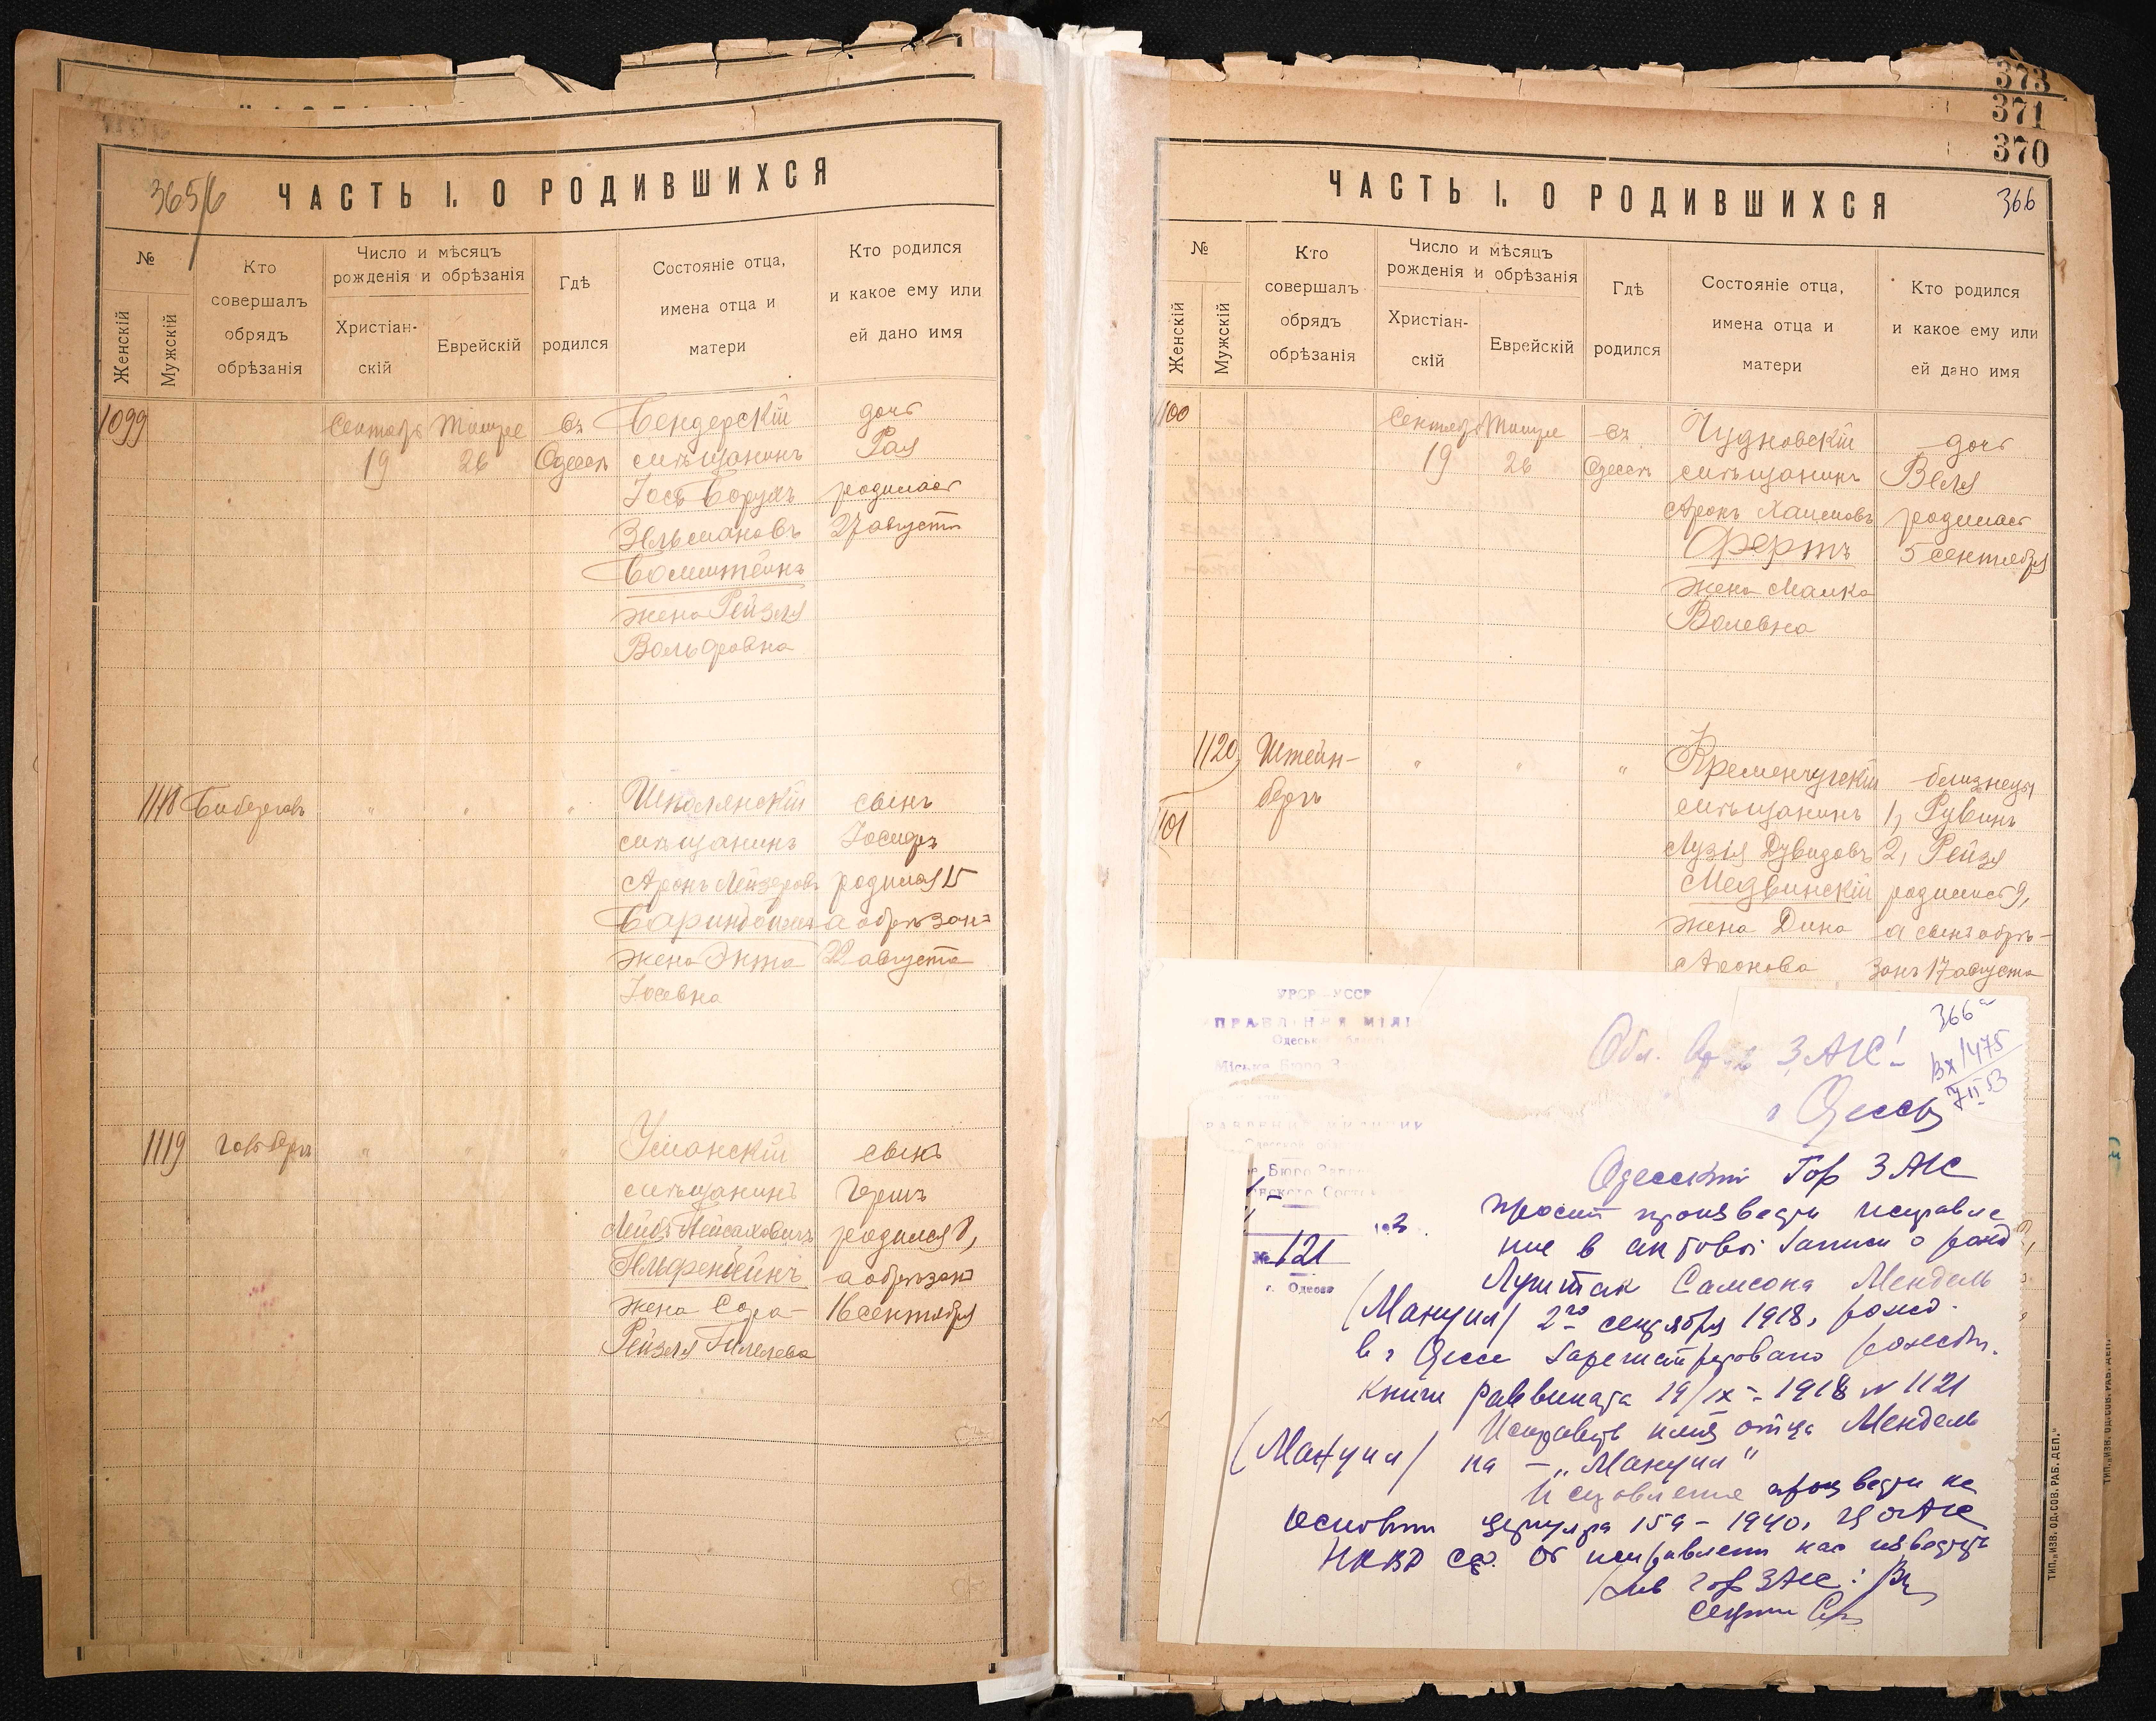 365/6
ЧАСТЬ I. О РОДИВШИХСЯ
№
Женскій
Мужскій
Кто
совершалъ
обрядъ
обрѣзанія
Число и мѣсяцъ
рожденія и обрѣзанія
Христіан-
скій
Еврейскій
Гдѣ
родился
Состояніе отца,
имена отца и
матери
Кто родился
и какое ему или
ей дано имя
1099
Сентябрь
19
Тишре
26
Въ
Одессѣ
Бендерскій
мѣщанинъ
Іось Борухъ
Зельмановъ
Бомштейнъ
жена Рейзля
Вольфовна
дочь
Рая
родилась
27 августа
1118
"
"
"
Шполянскій
мѣщанинъ
Аронъ Лейзеровъ
жена Энта
Іосевна
сынъ
Іосифъ
родился 15
а обрѣзанъ
22 августа
1119
"
"
"
Уманскій
мѣщанинъ
Лейбъ Пейсаховичъ
Гельфенбейнъ
жена Сора-
Рейзля Гилелева
сынъ
Гершъ
родился 8,
а обрѣзанъ
16 сентября
373
371
370
366
ЧАСТЬ I. О РОДИВШИХСЯ
№
Женскій
Мужскій
Кто
совершалъ
обрядъ
обрѣзанія
Число и мѣсяцъ
рожденія и обрѣзанія
Христіан-
скій
Еврейскій
Гдѣ
родился
Состояніе отца,
имена отца и
матери
Кто родился
и какое ему или
ей дано имя
1100
Сентябрь
19
Тишре
26
Въ
Одессѣ
Чудновскій
мѣщанинъ
Аронъ Хаимовъ
Фертъ
жена Малка
Волевна
дочь
Веля
родилась
5 сентября
1120
1101
Штейн-
бергъ
"
"
"
Кременчугскій
мѣщанинъ
Лузія Дувидовъ
Медвинскій
жена Дина
Аронова
близнецы
1, Рувинъ
2, Рейзя
родились 9,
а сынъ обрѣ-
занъ 17 августа
УРСР - УССР
366а
Вх/1475
7 II 53
ЗАГС!
г. Одесса
№ 121
г. Одесса
Одесский Гор ЗАГС
просит произвести исправле
ние в актовой записи о рожд
Луштак Самсона Мендель
(Мануил) 2го сентября 1918, рожд.
в г Одессе зарегистрировано рожден.
книги раввината 19/IX - 1918 N 1121
Исправить имя отца Мендель
(Мануил) на - "Мануил"
Исправление произвести на
основании циркуляра 159 - 1940, ЦОАГС
НКВД ССР. Об исправлении нас известить
Зав Гор ЗАГС:
ТИП. „ИЗВ. ОД. СОВ. РАБ. ДЕП."